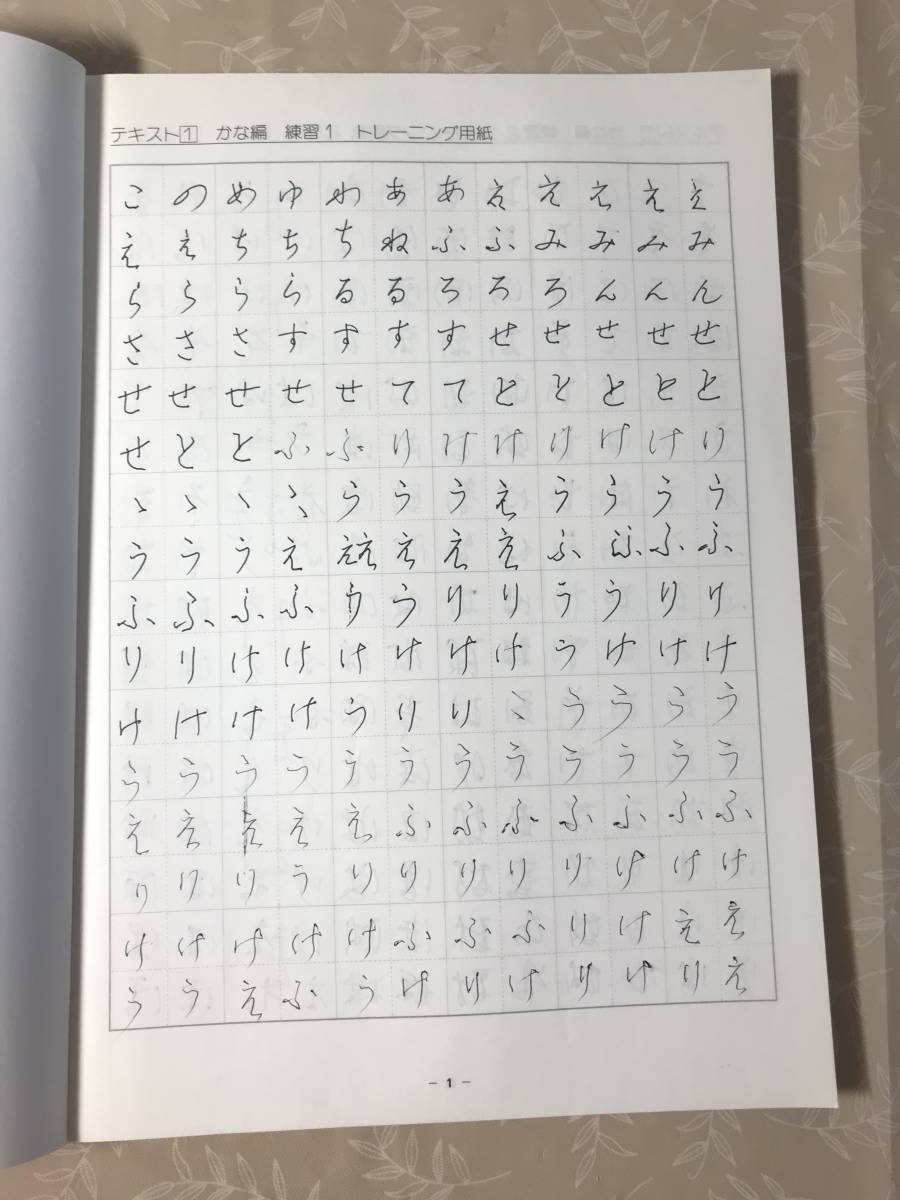 テキスト1 かな編 練習1 トレーニング用紙
こ の め ゆ わ あ あ え え え え え
え え ち ち ち ね ふ ふ み み み み
ら ら ら ら る る ろ ろ ろ ん ん ん
さ さ さ す す す す せ せ せ せ せ
せ せ せ せ せ て て と と と と と
せ と と ふ ふ り け け り け け り
ゝ ゝ ヽ う う う え う う う う
う う う え ええ え え え ふ ふ ふ ふ
ふ ふ ふ ふ う う り り う う り り
り り け け け け け け う け け け
け け け け う り り ヽ う う う う
う う う う う う う う う う う う
え え え え え ふ ふ ふ ふ ふ ふ ふ
り り り う り り り り り け け け
け け け け け ふ ふ ふ り け え え
う う え ふ う け り け り け り え
- 1 -